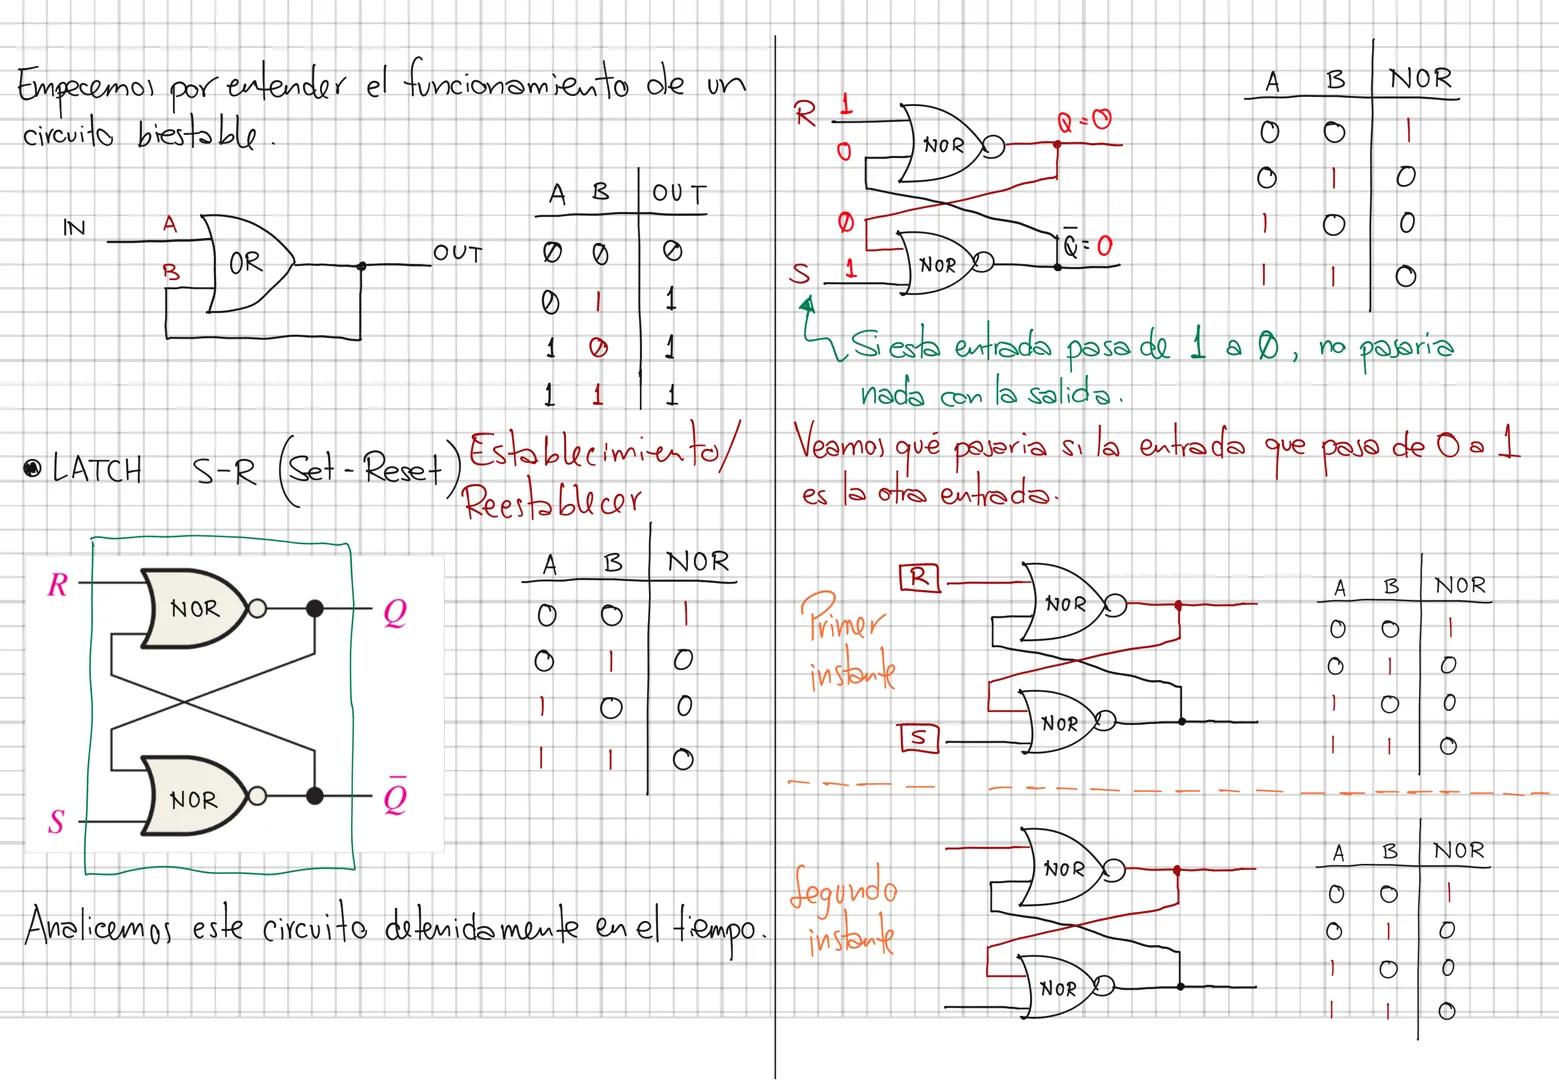 Empecemos por entender el funcionamiento de un
circuito biestable.
IN A B OR OUT
A B OUT
0 0 0
0 1 1
1 0 1
1 1 1
• LATCH S-R (Set-Reset) Establecimiento/
Reestablecer
R NOR Q
S NOR Q̅
A B NOR
0 0 1
0 1 0
1 0 0
1 1 0
Analicemos este circuito detenidamente en el tiempo.
R 1 NOR Q=0
0
0
S 1 NOR Q̅=0
A B NOR
0 0 1
0 1 0
1 0 0
1 1 0
Si esta entrada pasa de 1 a 0, no pasaria
nada con la salida.
Veamos qué pasaria si la entrada que pasa de 0 a 1
es la otra entrada.
Primer
instante
R NOR
S NOR
A B NOR
0 0 1
0 1 0
1 0 0
1 1 0
Segundo
instante
NOR
NOR
A B NOR
0 0 1
0 1 0
1 0 0
1 1 0